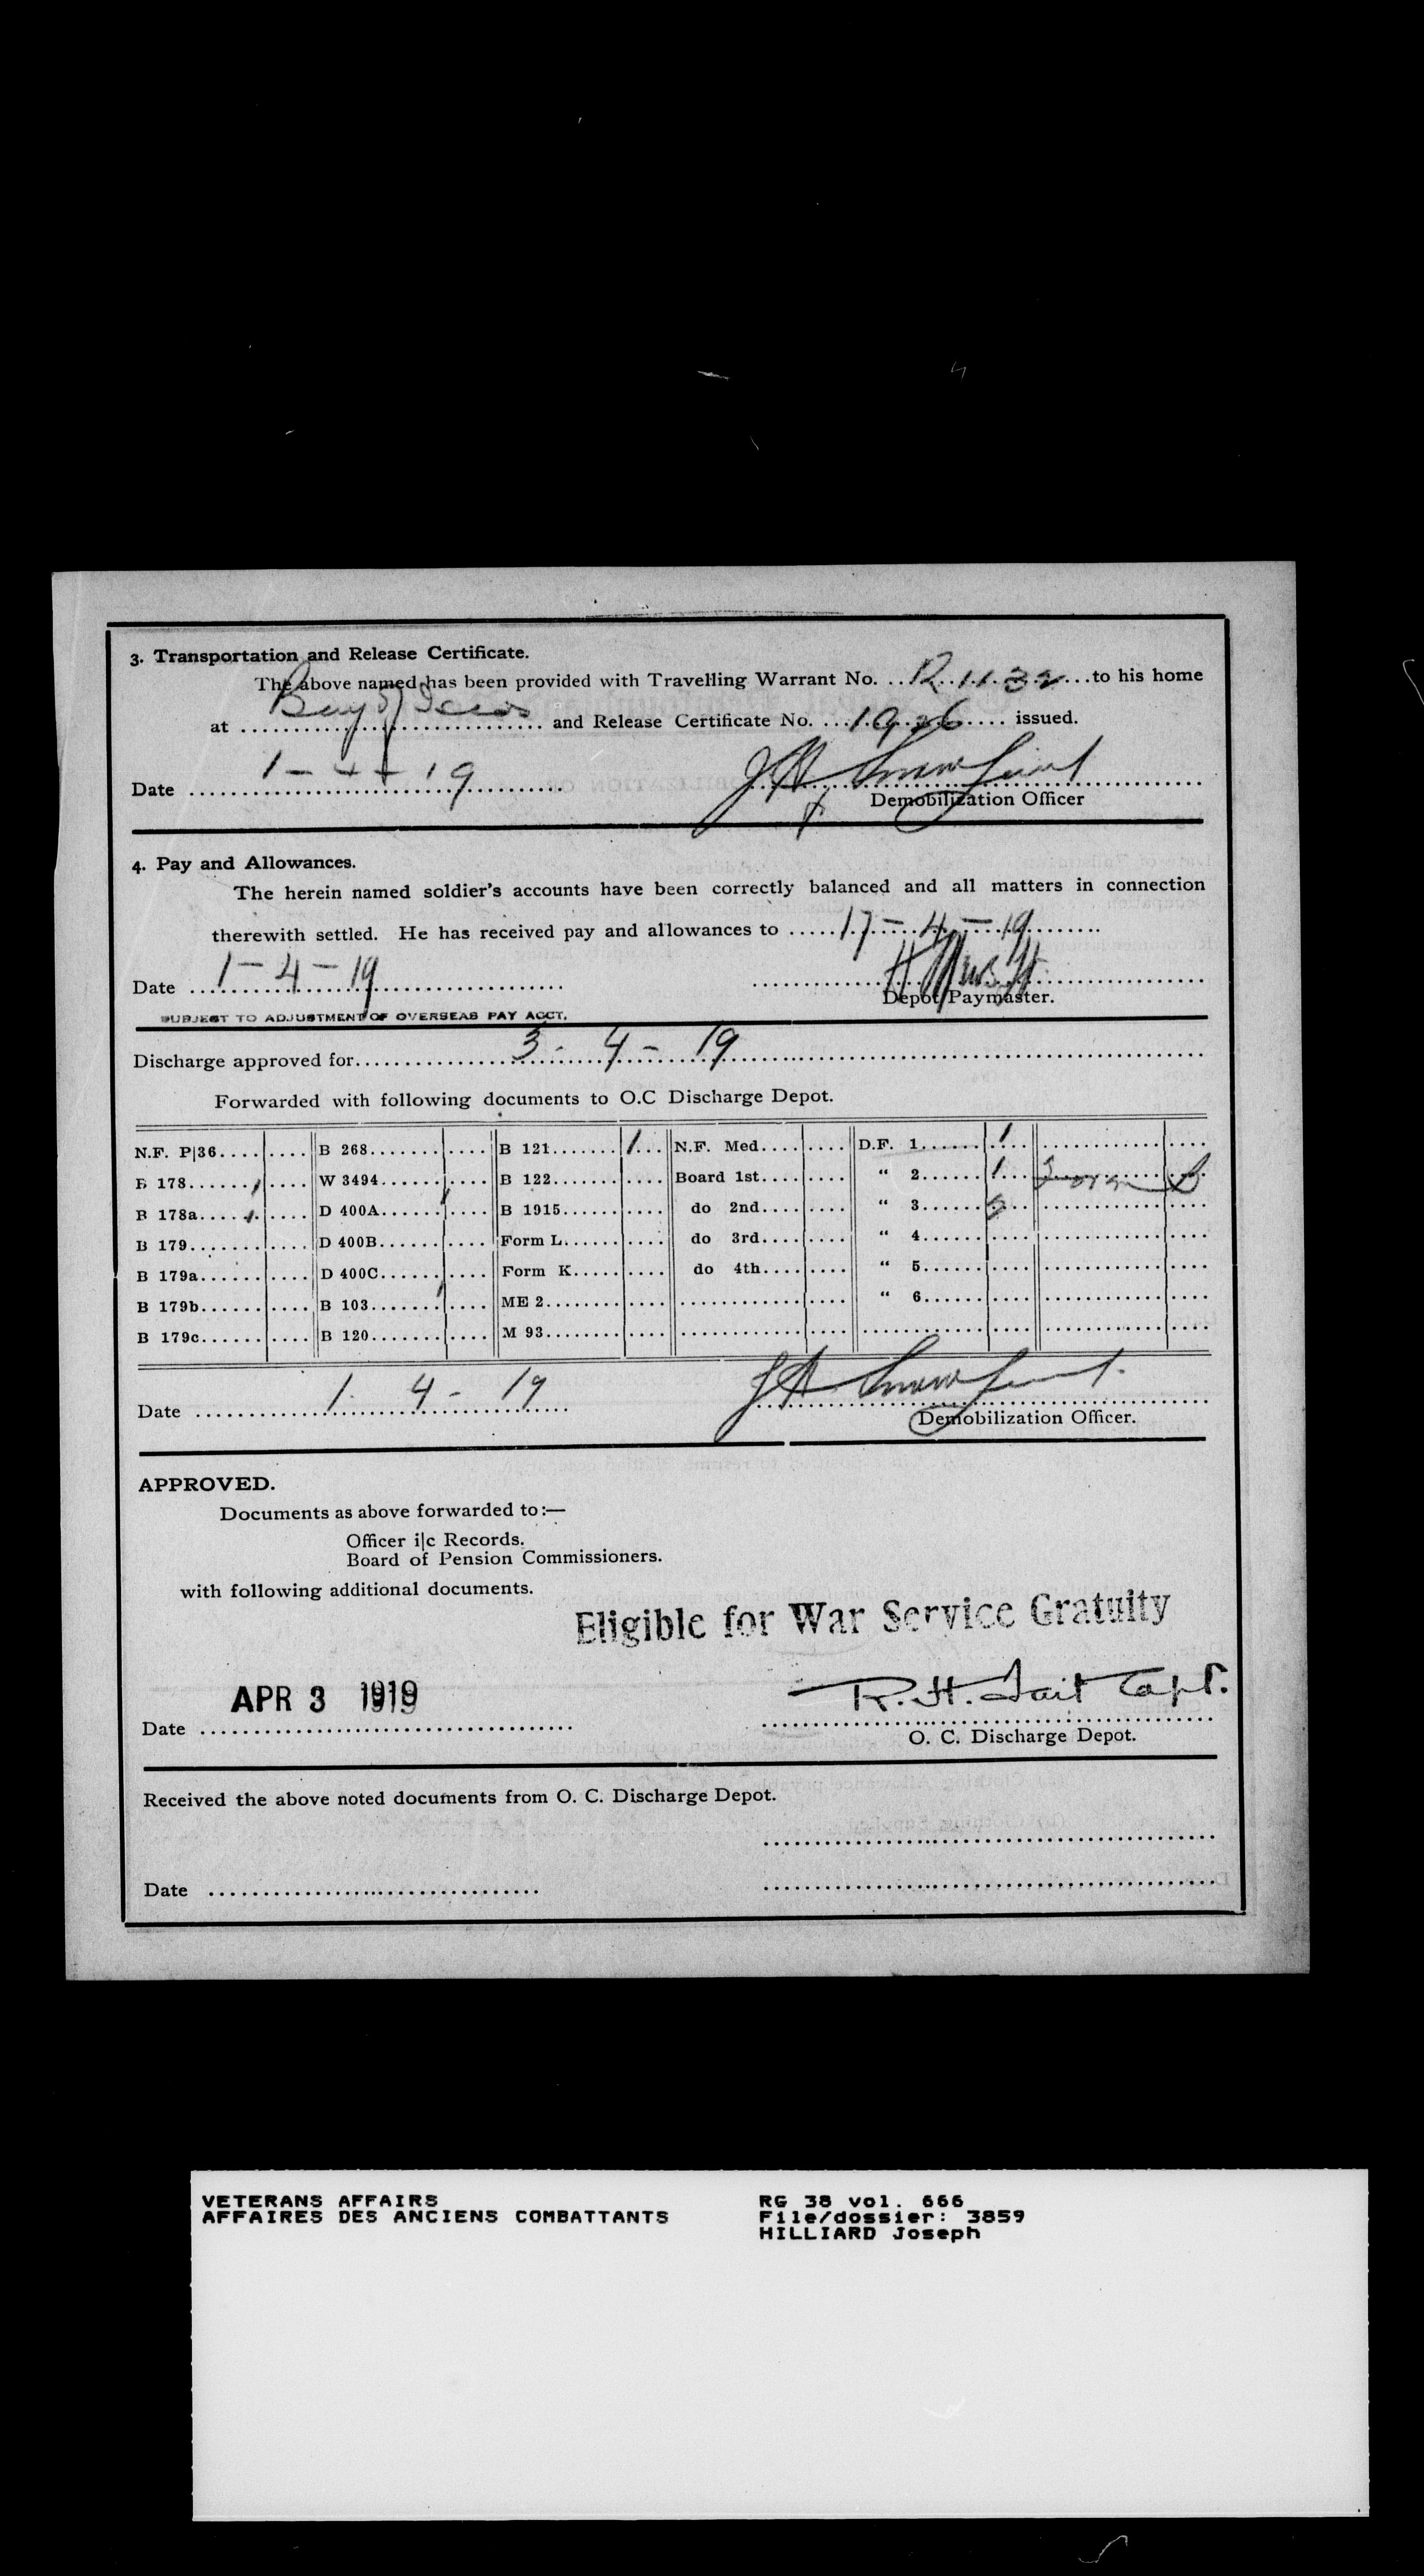 3. Transportation and Release Certificate.
The above named has been provided with Travelling Warrant No. R 1132 to his home
at Bay of and Release Certificate No. 1926 issued.
Date 1-4-19
Demobilization Officer
4. Pay and Allowances.
The herein named soldier's accounts have been correctly balanced and all matters in connection
therewith settled. He has received pay and allowances to 17-4-19
Date 1-4-19
Depot Paymaster.
SUBJECT TO ADJUSTMENT OF OVERSEAS PAY ACCT.
Discharge approved for 3-4-19
Forwarded with following documents to O.C Discharge Depot.
N.F. P|36 B 268 B 121 1 N.F. Med D.F. 1 1
B 178 1 W 3494 B 122 Board 1st “ 2 1
B 178a 1 D 400A 1 B 1915 do 2nd “ 3
B 179 D 400B Form L do 3rd “ 4
B 179a D 400C Form K do 4th “ 5
B 179b B 103 1 ME 2 “ 6
B 179c B 120 M 93
Date 1. 4-19
Demobilization Officer.
APPROVED.
Documents as above forwarded to:—
Officer i|c Records.
Board of Pension Commissioners.
with following additional documents.
Eligible for War Service Gratuity
APR 3 1919 R. H. Tait Capt.
Date
O. C. Discharge Depot.
Received the above noted documents from O. C. Discharge Depot.
Date
VETERANS AFFAIRS RG 38 vol. 666
AFFAIRES DES ANCIENS COMBATTANTS File/dossier: 3859
HILLIARD Joseph